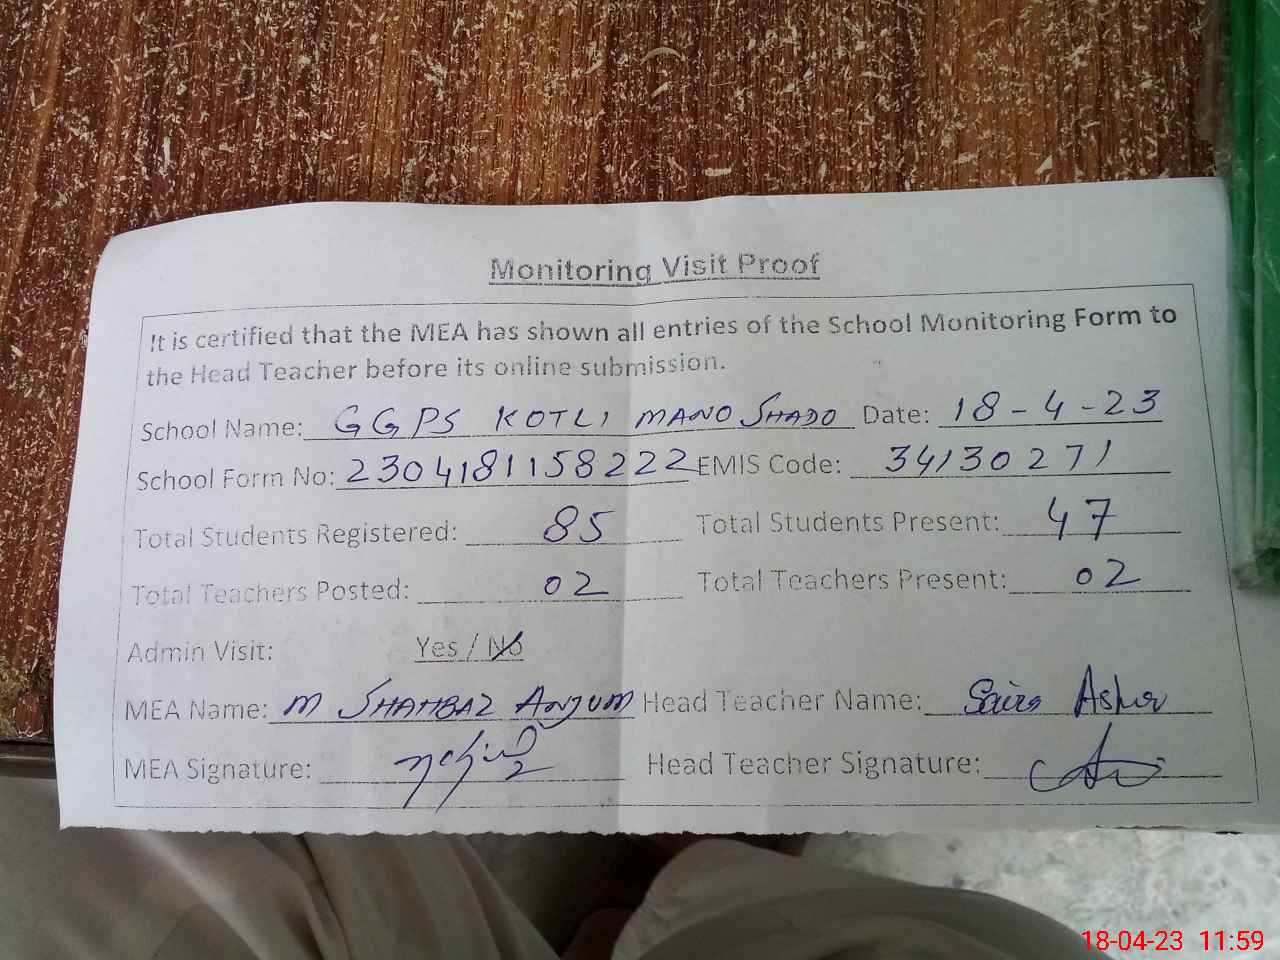 Monitoring Visit Proof
It is certified that the MEA has shown all entries of the School Monitoring Form to
the Head Teacher before its online submission.
School Name: GGPS KOTLI MANO SHADO Date: 18-4-23
School Form No: 2304181158222 EMIS Code: 34130271
Total Students Registered: 85 Total Students Present: 47
Total Teachers Posted: 02 Total Teachers Present: 02
Admin Visit: Yes / No
MEA Name: M SHAHBAZ ANJUM Head Teacher Name: Saira
MEA Signature: Head Teacher Signature:
18-04-23 11:59